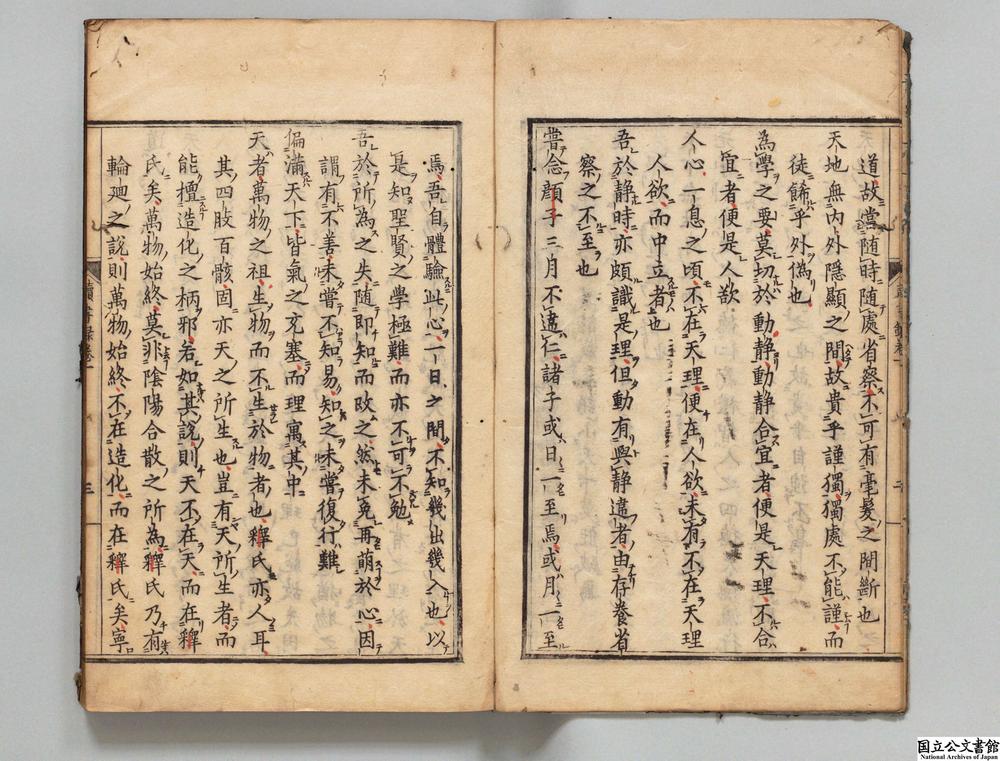 道故當随時随處省察不可有毫髮之間斷也
天地無内外隱顯之間故貴乎謹獨獨處不能謹而
徒餙乎外僞也
為學之要莫切於動静動静合宜者便是天理不合
宜者便是人欲
人心一息之頃不在天理便在人欲未有不在天理
人欲而中立者也
吾於静時亦頗識是理但動有與静違者由存養省
察之不至也
嘗念顔子三月不違仁諸子或日一至焉或月一至
焉吾自體驗此心一日之間不知幾出幾入也以
是知聖賢之學極難而亦不可不勉
吾於所為之失随即知而改之然未免再萌於心因
謂有不善未嘗不知易知之未嘗復行難
偏滿天下皆氣之充塞而理寓其中
天者萬物之祖生物而不生於物者也釋氏亦人耳
其四肢百骸固亦天之所生也豈有天所生者而
能擅造化之柄邪若如其說則天不在天而在釋
氏矣萬物始終莫非陰陽合散之所為釋氏乃有
輪廻之説則萬物始終不在造化而在釋氏矣寧
讀書録卷一
三
国立公文書館
National Archives of Japan